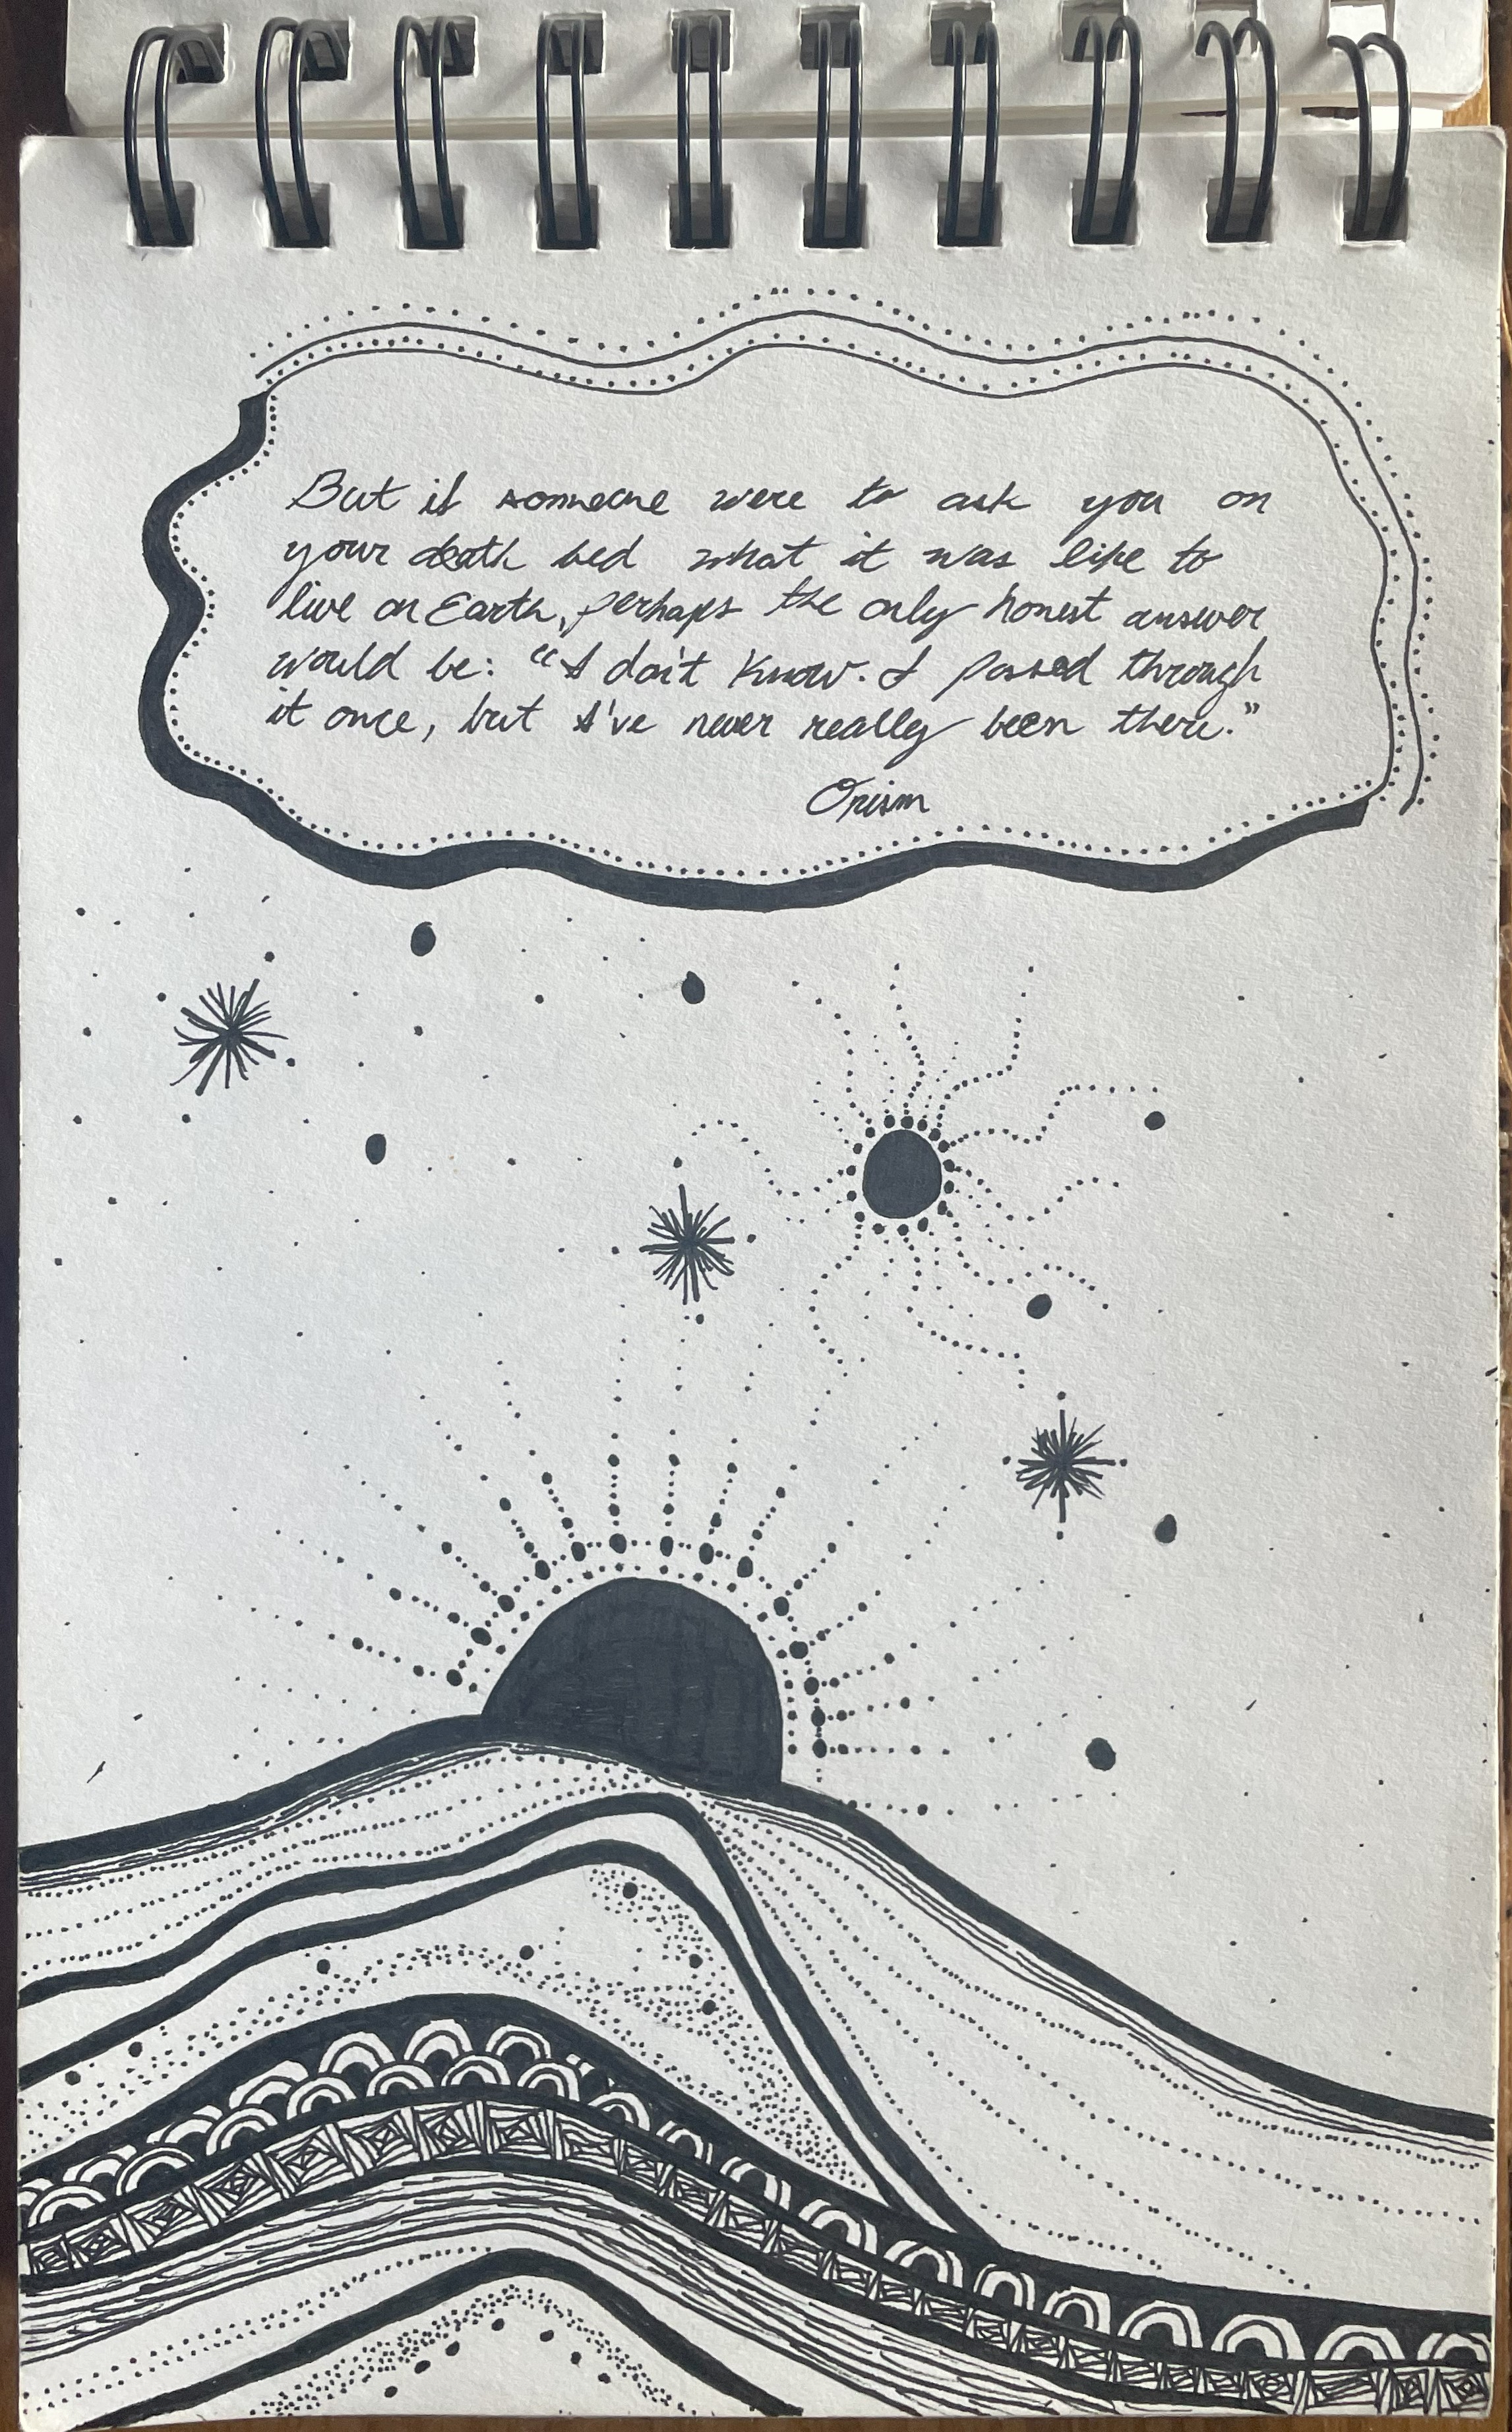 But if someone were to ask you on
your death bed what it was like to
live on Earth, perhaps the only honest answer
would be: "I don't know. I passed through
it once, but I've never really been there."
Orism